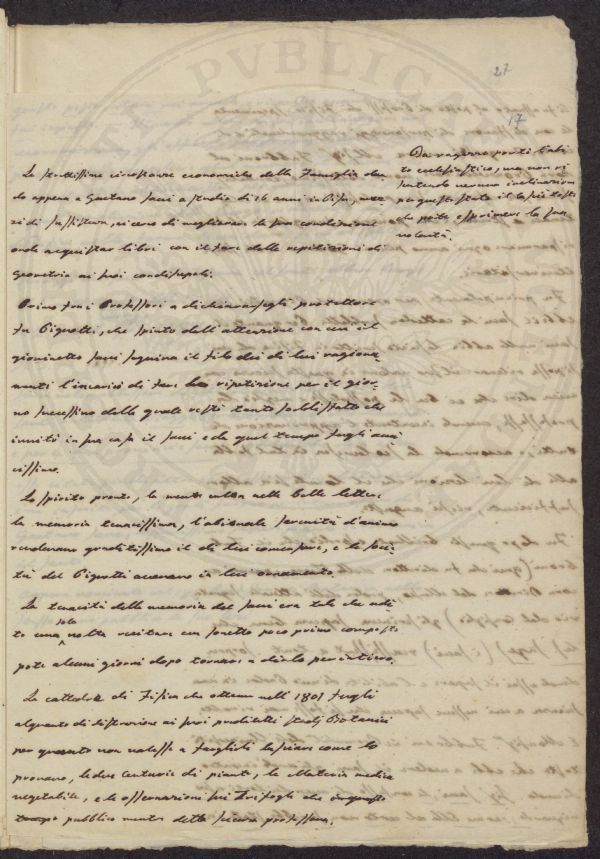 27
17
Da ragazzo portò l'abi
to ecclesiastico, ma non vi
sentendo veruna inclinazione
per questo stato il lasciò tosto
che potè esprimere la sua
volontà.
Le strettissime circostanze economiche della Famiglia
do appena a Gaetano Savi a studio di 16 anni in Pisa, mez
zi di sussistenza, cercò di migliorare la sua condizione
onde acquistar libri con il fare delle repetizioni di
Geometria ai suoi condiscepoli.
Primo fra i Professori a dichiararsegli protettore
fu Pignotti, che spinto dall'attenzione con cui il
giovinetto Savi seguiva il filo dei di lui ragiona
menti l'incaricò di fare la ripetizione per il gior
no successivo della quale restò tanto soddisfatto che
invitò in sua casa il Savi e da quel tempo fugli ami
cissimo.
Lo spirito pronto, la mente culta nelle belle lettere,
la memoria tenacissima, l'abituale serenità d'animo
rendevano graditissimo il di lui conversare, e la soci
tà del Pignotti avevano in lui ornamento.
La tenacità della memoria del Savi era tale che udi
to una sola volta recitare un sonetto poco prima composto
potè alcuni giorni dopo tornare a dirlo per intiero.
La cattedra di Fisica che ottenne nell'1801 fugli
alquanto di distrazione ai suoi prediletti studj Botanici
per quanto non valesse a farglieli lasciare come lo
provano, le due centurie di piante, la Materia medica
vegetabile, e le osservazioni sui Trifogli che
tempo pubblicò mentre detta fisica professava.